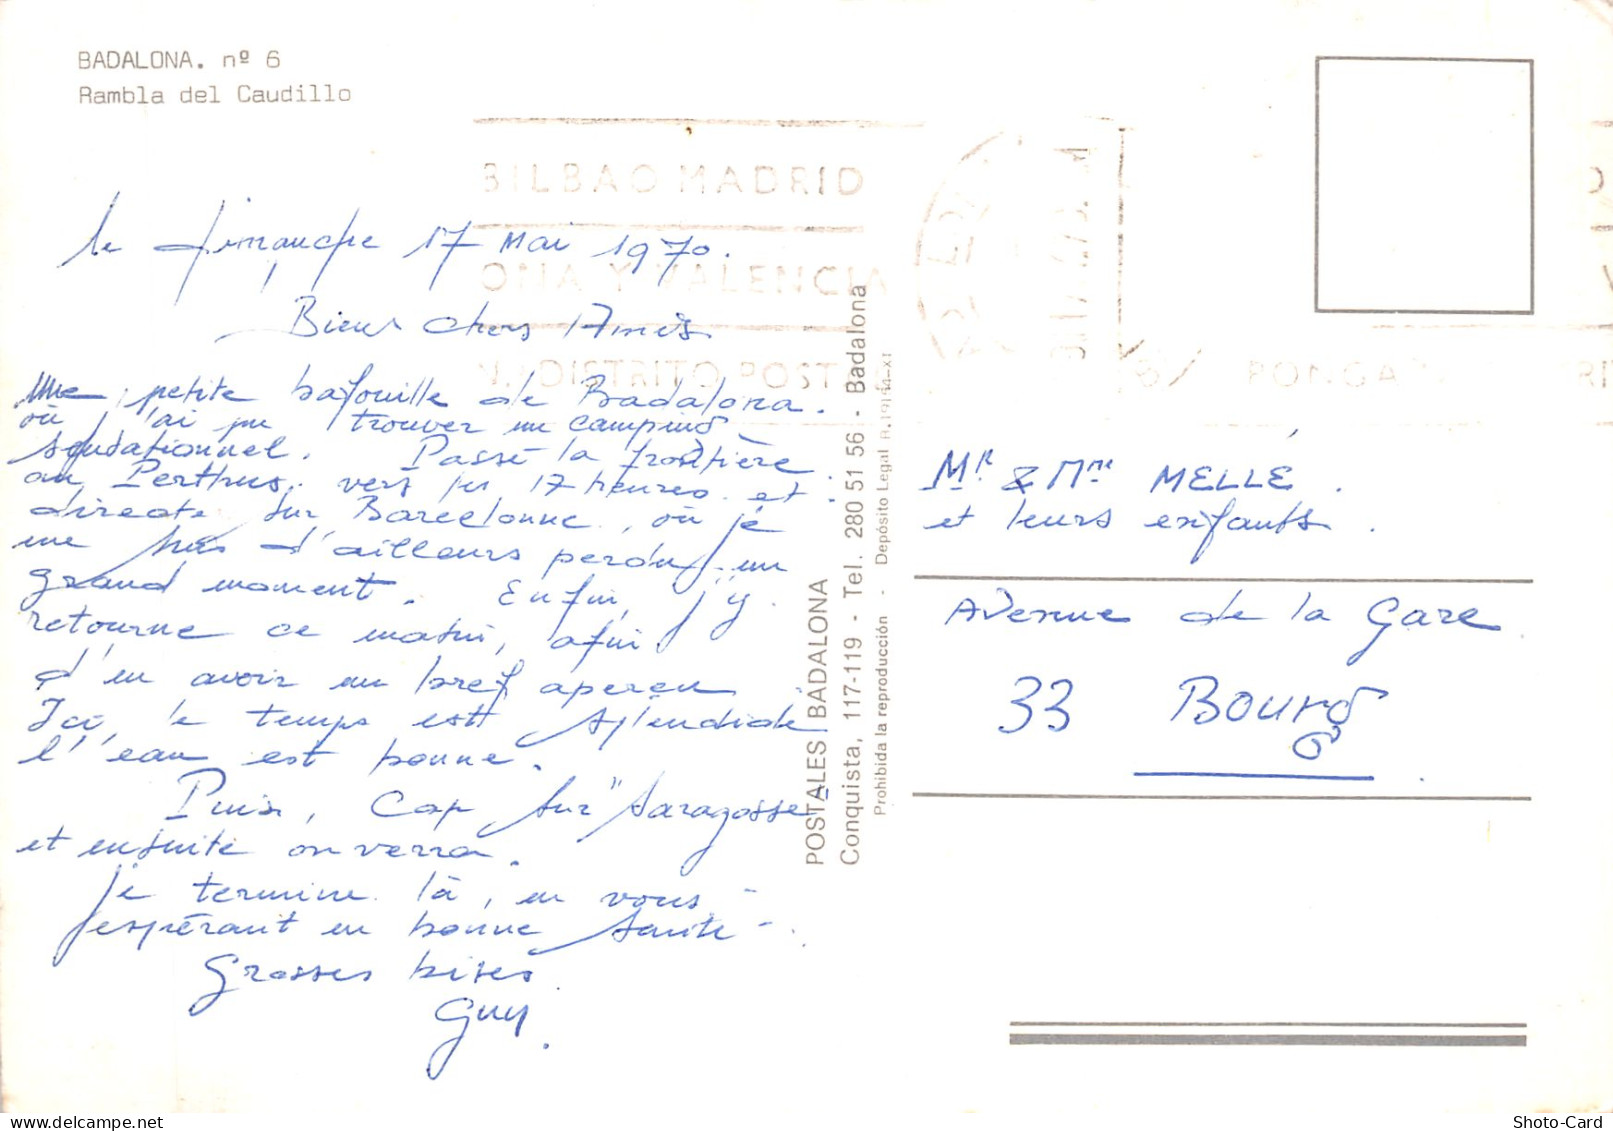 BADALONA. nº 6
Rambla del Caudillo
BILBAO MADRID
ONA Y VALENCIA
DISTRITO POSTAL
PONGA
le dimanche 17 Mai 1970.
Bien chers Amis
Une petite bafouille de Badalona.
où j'ai pu trouver un camping
sensationnel. Passé la frontière
au Perthus, vers les 17 heures et
directe sur Barcelonne, où je
me suis d'ailleurs perdu un
grand moment. Enfin, j'y
retourne ce matin, afin
d'en avoir un bref aperçu
Ici, le temps est splendide
l'eau est bonne.
Puis, Cap sur "Saragosse"
et ensuite on verra.
Je termine là, en vous
espérant en bonne santé.
Grosses bises
Guy.
POSTALES BADALONA
Conquista, 117-119 - Tel. 280 51 56 - Badalona
Prohibida la reproducción - Depósito Legal B.
Mr & Mme MELLÉ.
et leurs enfants.
Avenue de la Gare
33 Bourg
www.delcampe.net
Shoto-Card